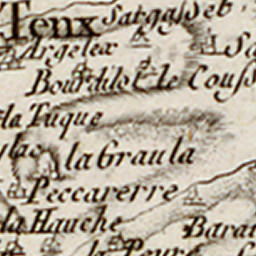 Tenx
Satgasset
Argelex
Sa
Bourdilot le Couss
la Tuque
lac
la Graula
Peccarerre
la Hauche
Barat
la Peyre